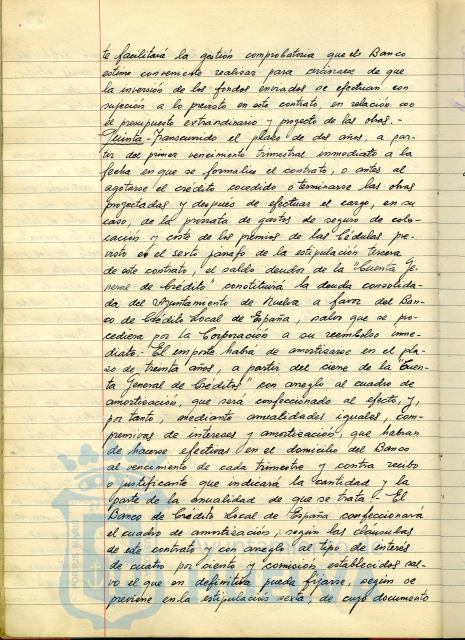 te facilitará la gestión comprobatoria que el Banco
estime conveniente realizar para cerciorarse de que
la inversión de los fondos enviados se efectúan con
sujeción a lo previsto en este contrato, en relación con
el presupuesto extraordinario y proyecto de las obras.-
Quinta-Transcurrido el plazo de dos años, a par-
tir del primer vencimiento trimestral inmediato a la
fecha en que se formalice el contrato, o antes al
agotarse el crédito cocedido o terminarse las obras
proyectadas y después de efectuar el cargo, en su
caso, de la prorrata de gastos de seguro de colo-
cación y coste de los premios de las Cédulas pre-
visto en el sexto párrafo de la estipulación tercera
de este contrato, el saldo deudor de la "Cuenta Ge-
neral de Crédito" constituirá la deuda consolida-
da del Ayuntamiento de Huelva a favor del Ban-
co de Crédito Local de España, salvo que se pro-
cediera por la Corporación a su reembolso inme-
diato.- El importe habrá de amortizarse en el pla-
zo de treinta años, a partir del cierre de la "Cuen-
ta General de Créditos" con arreglo al cuadro de
amortización, que será confeccionado al efecto, y,
por tanto, mediante anualidades iguales, com-
prensivas de intereses y amortización, que habrán
de hacerse efectivas en el domicilio del Banco
al vencimiento de cada trimestre y contra recibo
o justificante que indicará la cantidad y la
parte de la anualidad de que se trata.- El
Banco de Crédito Local de España confeccionará
el cuadro de amortización, según las cláusulas
de este contrato y con arreglo al tipo de interés
de cuatro por ciento y comisión establecidos sal-
vo el que en definitiva pueda fijarse, según se
previene en la estipulación sexta, de cuyo documento
PORTUS MARIS